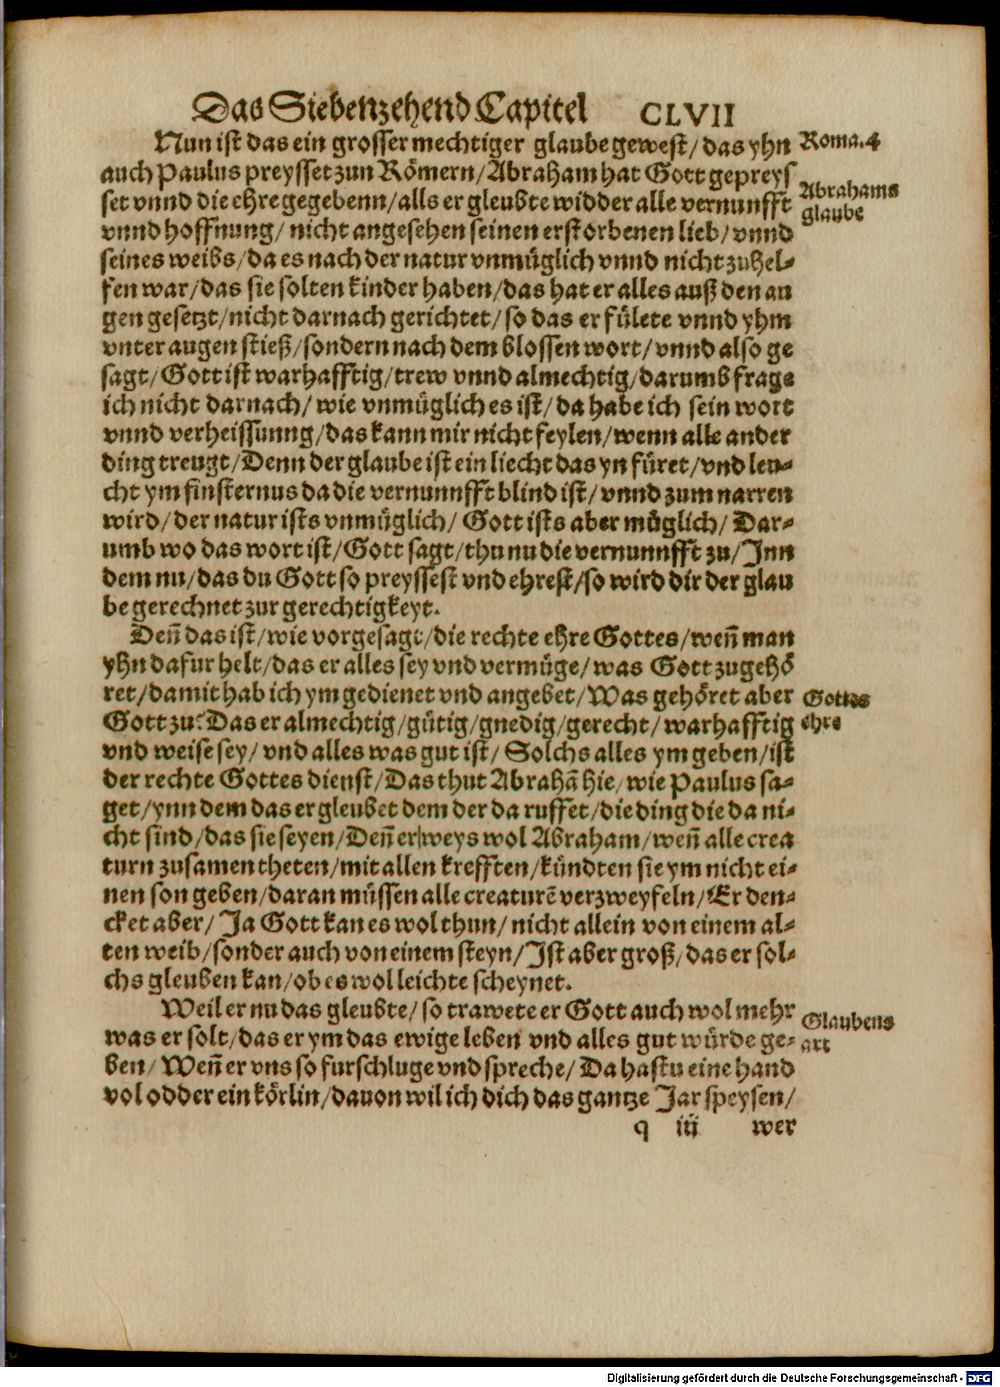 Das Siebenzehend Capitel CLVII
Nun ist das ein grosser mechtiger glaube gewest/das yhn
Roma.4
auch Paulus preysset zun Römern/Abraham hat Gott gepreys
set vnnd die ehre gegebenn/alls er gleubte widder alle vernunfft
Abrahams
glaube
vnnd hoffnung/nicht angesehen seinen erstorbenen lieb/vnnd
seines weibs/da es nach der natur vnmüglich vnnd nicht zuhel-
fen war/das sie solten kinder haben/das hat er alles auß den au
gen gesetzt/nicht darnach gerichtet/so das er fülete vnnd yhm
vnter augen stieß/sondern nach dem blossen wort/vnnd also ge
sagt/Gott ist warhafftig/trew vnnd almechtig/darumb frage
ich nicht darnach/wie vnmüglich es ist/da habe ich sein wort
vnnd verheissunng/das kann mir nicht feylen/wenn alle ander
ding treugt/Denn der glaube ist ein liecht das yn füret/vnd leu-
cht ym finsternus da die vernunnfft blind ist/vnnd zum narren
wird/der natur ists vnmüglich/Gott ists aber müglich/Dar-
umb wo das wort ist/Gott sagt/thu nu die vernunnfft zu/Jnn
dem nu/das du Gott so preyssest vnd ehrest/so wird dir der glau
be gerechnet zur gerechtigkeyt.
Deñ das ist/wie vorgesagt/die rechte ehre Gottes/weñ man
yhn dafur helt/das er alles sey vnd vermüge/was Gott zugehö
ret/damit hab ich ym gedienet vnd angebet/Was gehöret aber
Gottes
ehre
Gott zu? Das er almechtig/gütig/gnedig/gerecht/warhafftig
vnd weise sey/vnd alles was gut ist/Solchs alles ym geben/ist
der rechte Gottes dienst/Das thut Abrahã hie/wie Paulus sa-
get/ynn dem das er gleubet dem der da ruffet/die ding die da ni-
cht sind/das sie seyen/Deñ er weys wol Abraham/weñ alle crea
turn zusamen theten/mit allen krefften/kündten sie ym nicht ei-
nen son geben/daran müssen alle creaturẽ verzweyfeln/Er den-
cket aber/Ja Gott kan es wol thun/nicht allein von einem al-
ten weib/sonder auch von einem steyn/Jst aber groß/das er sol-
chs gleuben kan/ob es wol leichte scheynet.
Weil er nu das gleubte/so trawete er Gott auch wol mehr
Glaubens
art
was er solt/das er ym das ewige leben vnd alles gut würde ge-
ben/Weñ er vns so furschluge vnd spreche/Da hastu eine hand
vol odder ein körlin/dauon wil ich dich das gantze Jar speysen/
q iij wer
Digitalisierung gefördert durch die Deutsche Forschungsgemeinschaft - DFG